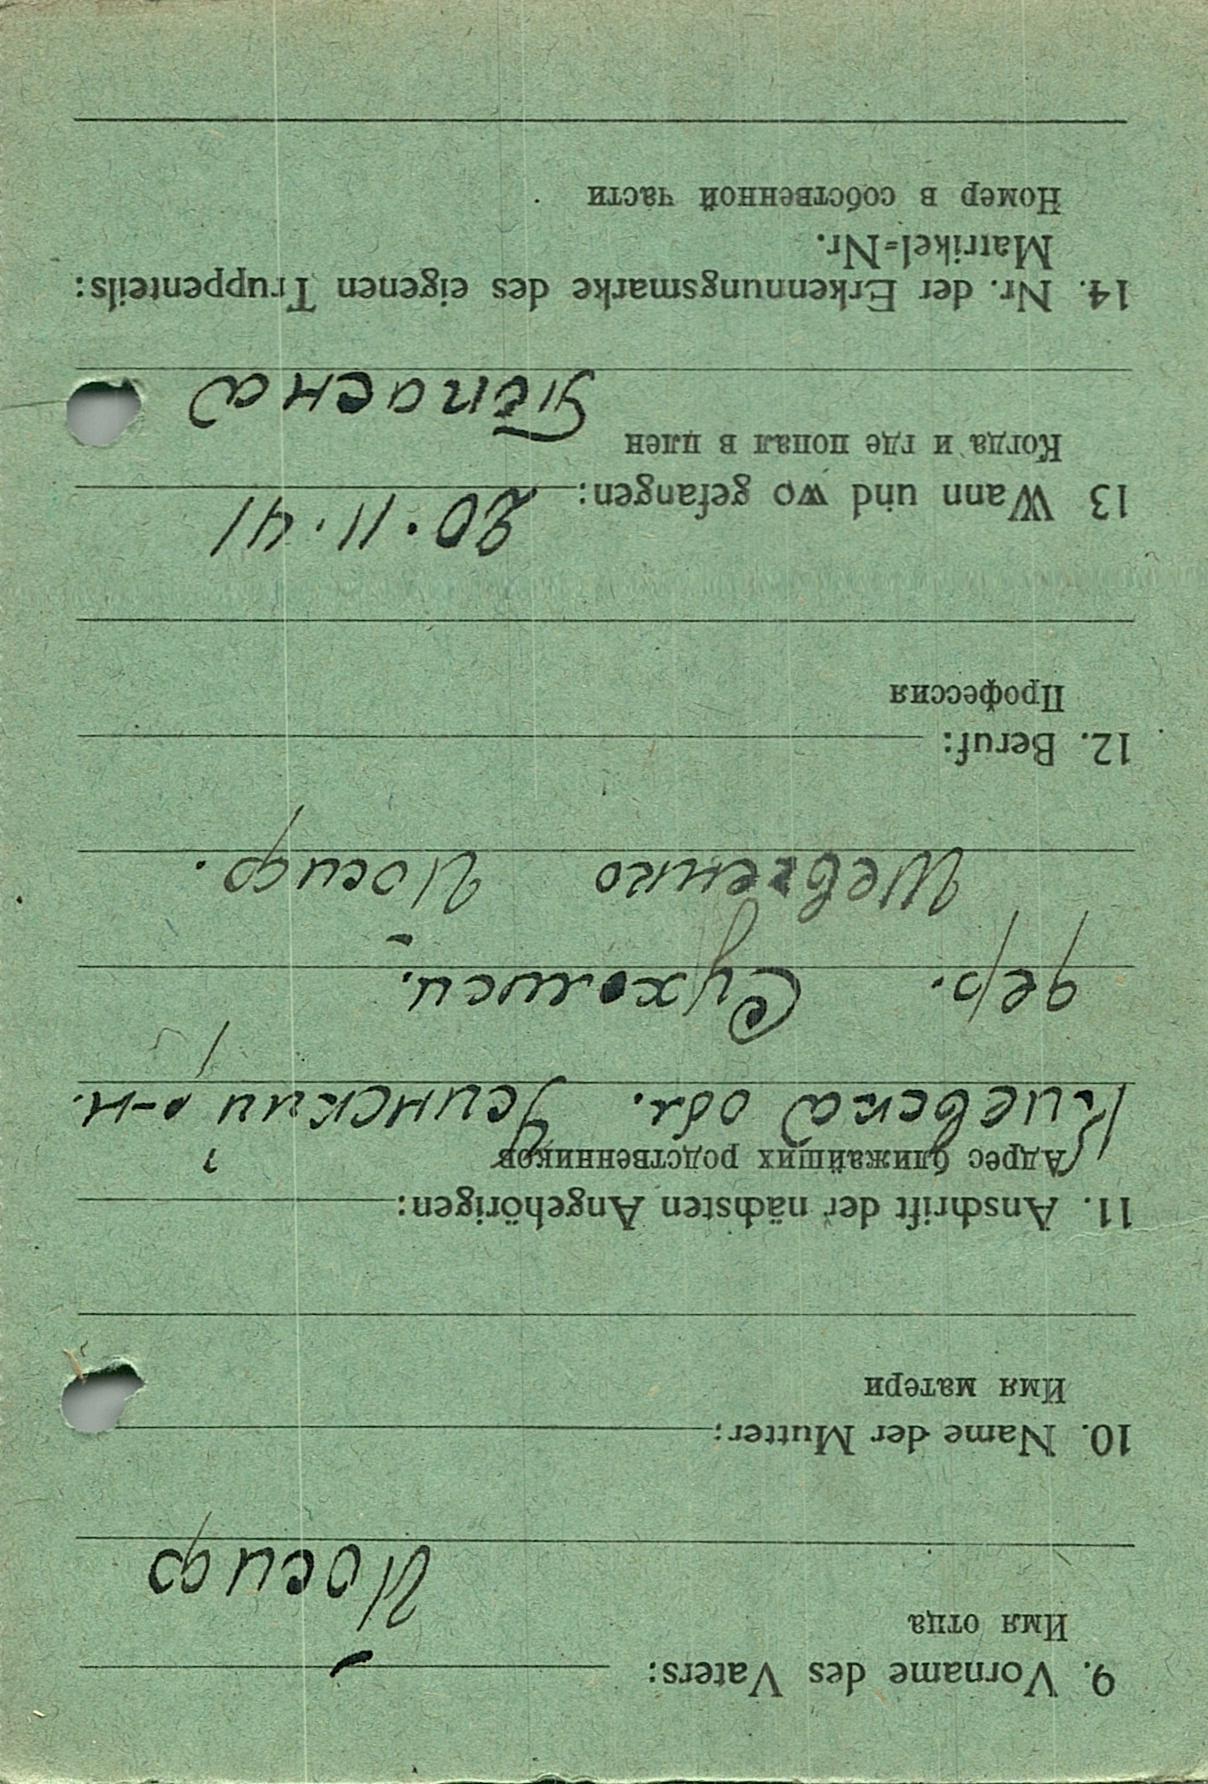 9. Vorname des Vaters:
Имя отца
Йосиф
10. Name der Mutter:
Имя матери
11. Anschrift der nächsten Angehörigen:
Адрес ближайших родственников
Киевска обл. р-н.
дер.
Шевченко Иосиф.
12. Beruf:
Профессия
20.11.41
13 Wann und wo gefangen:
Когда и где попал в плен
14. Nr. der Erkennungsmarke des eigenen Truppenteils:
Matrikel=Nr.
Номер в собственной части